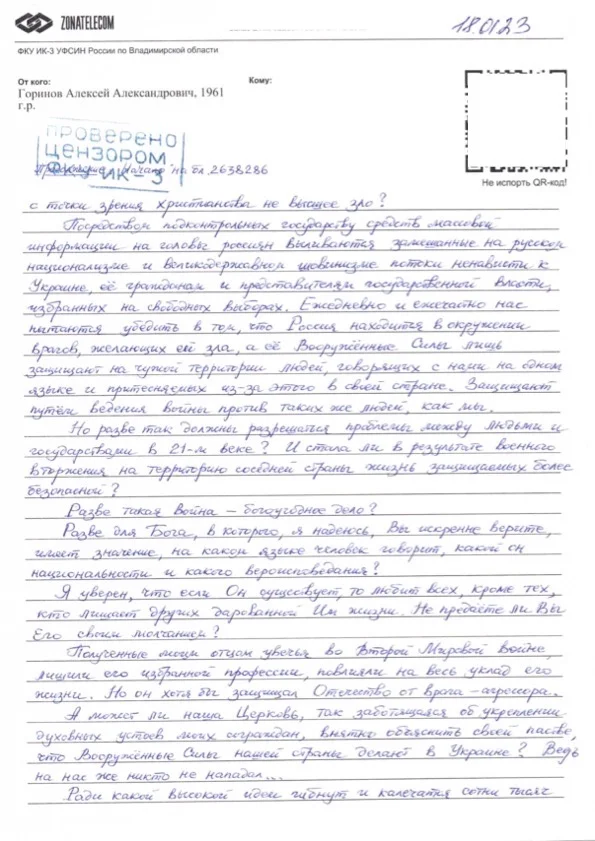 ZONATELECOM
18.01.23
ФКУ ИК-3 УФСИН России по Владимирской области
От кого:
Кому:
Горинов Алексей Александрович, 1961
г.р.
ПРОВЕРЕНО
ЦЕНЗОРОМ
ФКУ ИК-3
Продолжение. Начало на бл. 2638286
Не испорть QR-код!
с точки зрения христианства не высшее зло?
Посредством подконтрольных государству средств массовой
информации на головы россиян выливаются замешанные на русском
национализме и великодержавном шовинизме потоки ненависти к
Украине, её гражданам и представителям государственной власти,
избранных на свободных выборах. Ежедневно и ежечасно нас
пытаются убедить в том, что Россия находится в окружении
врагов, желающих ей зла, а её Вооружённые Силы лишь
защищают на чужой территории людей, говорящих с нами на одном
языке и притесняемых из-за этого в своей стране. Защищают
путём ведения войны против таких же людей, как мы.
Но разве так должны разрешаться проблемы между людьми и
государствами в 21-м веке? И стала ли в результате военного
вторжения на территорию соседней страны жизнь защищаемых более
безопасной?
Разве такая война – богоугодное дело?
Разве для Бога, в которого, я надеюсь, Вы искренне верите,
имеет значение, на каком языке человек говорит, какой он
национальности и какого вероисповедания?
Я уверен, что если Он существует, то любит всех, кроме тех,
кто лишает других дарованной Им жизни. Не предаёте ли Вы
Его своим молчанием?
Полученные моим отцом увечья во Второй Мировой войне,
лишили его избранной профессии, повлияли на весь уклад его
жизни. Но он хотя бы защищал Отечество от врага-агрессора.
А может ли наша Церковь, так заботящаяся об укреплении
духовных устоев моих сограждан, внятно объяснить своей пастве,
что Вооружённые Силы нашей страны делают в Украине? Ведь
на нас же никто не нападал...
Ради какой высокой идеи гибнут и калечатся сотни тысяч